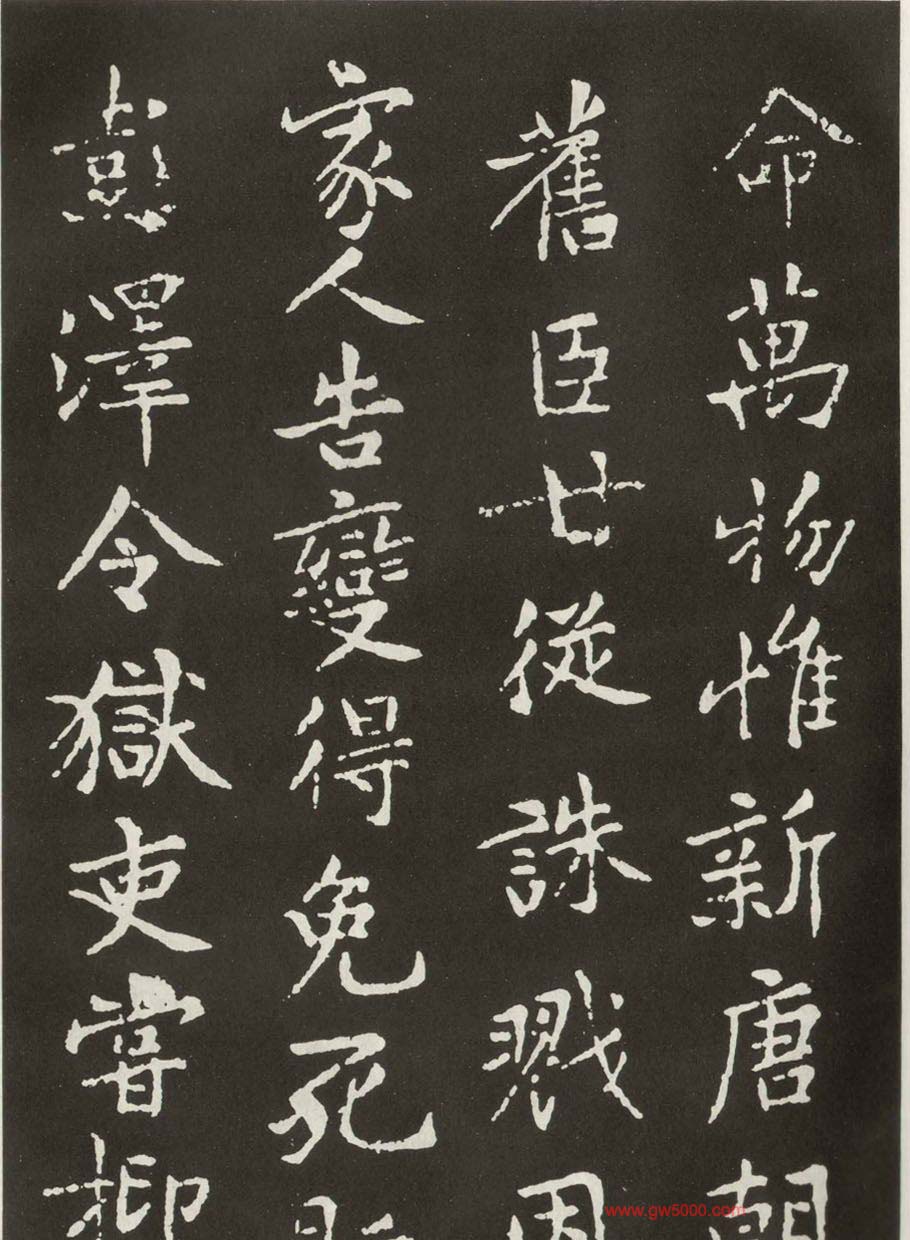 命萬物惟新唐朝
舊臣甘從誅戮因
家人告變得免死
彭澤令獄吏嘗抑
www.gw5000.com